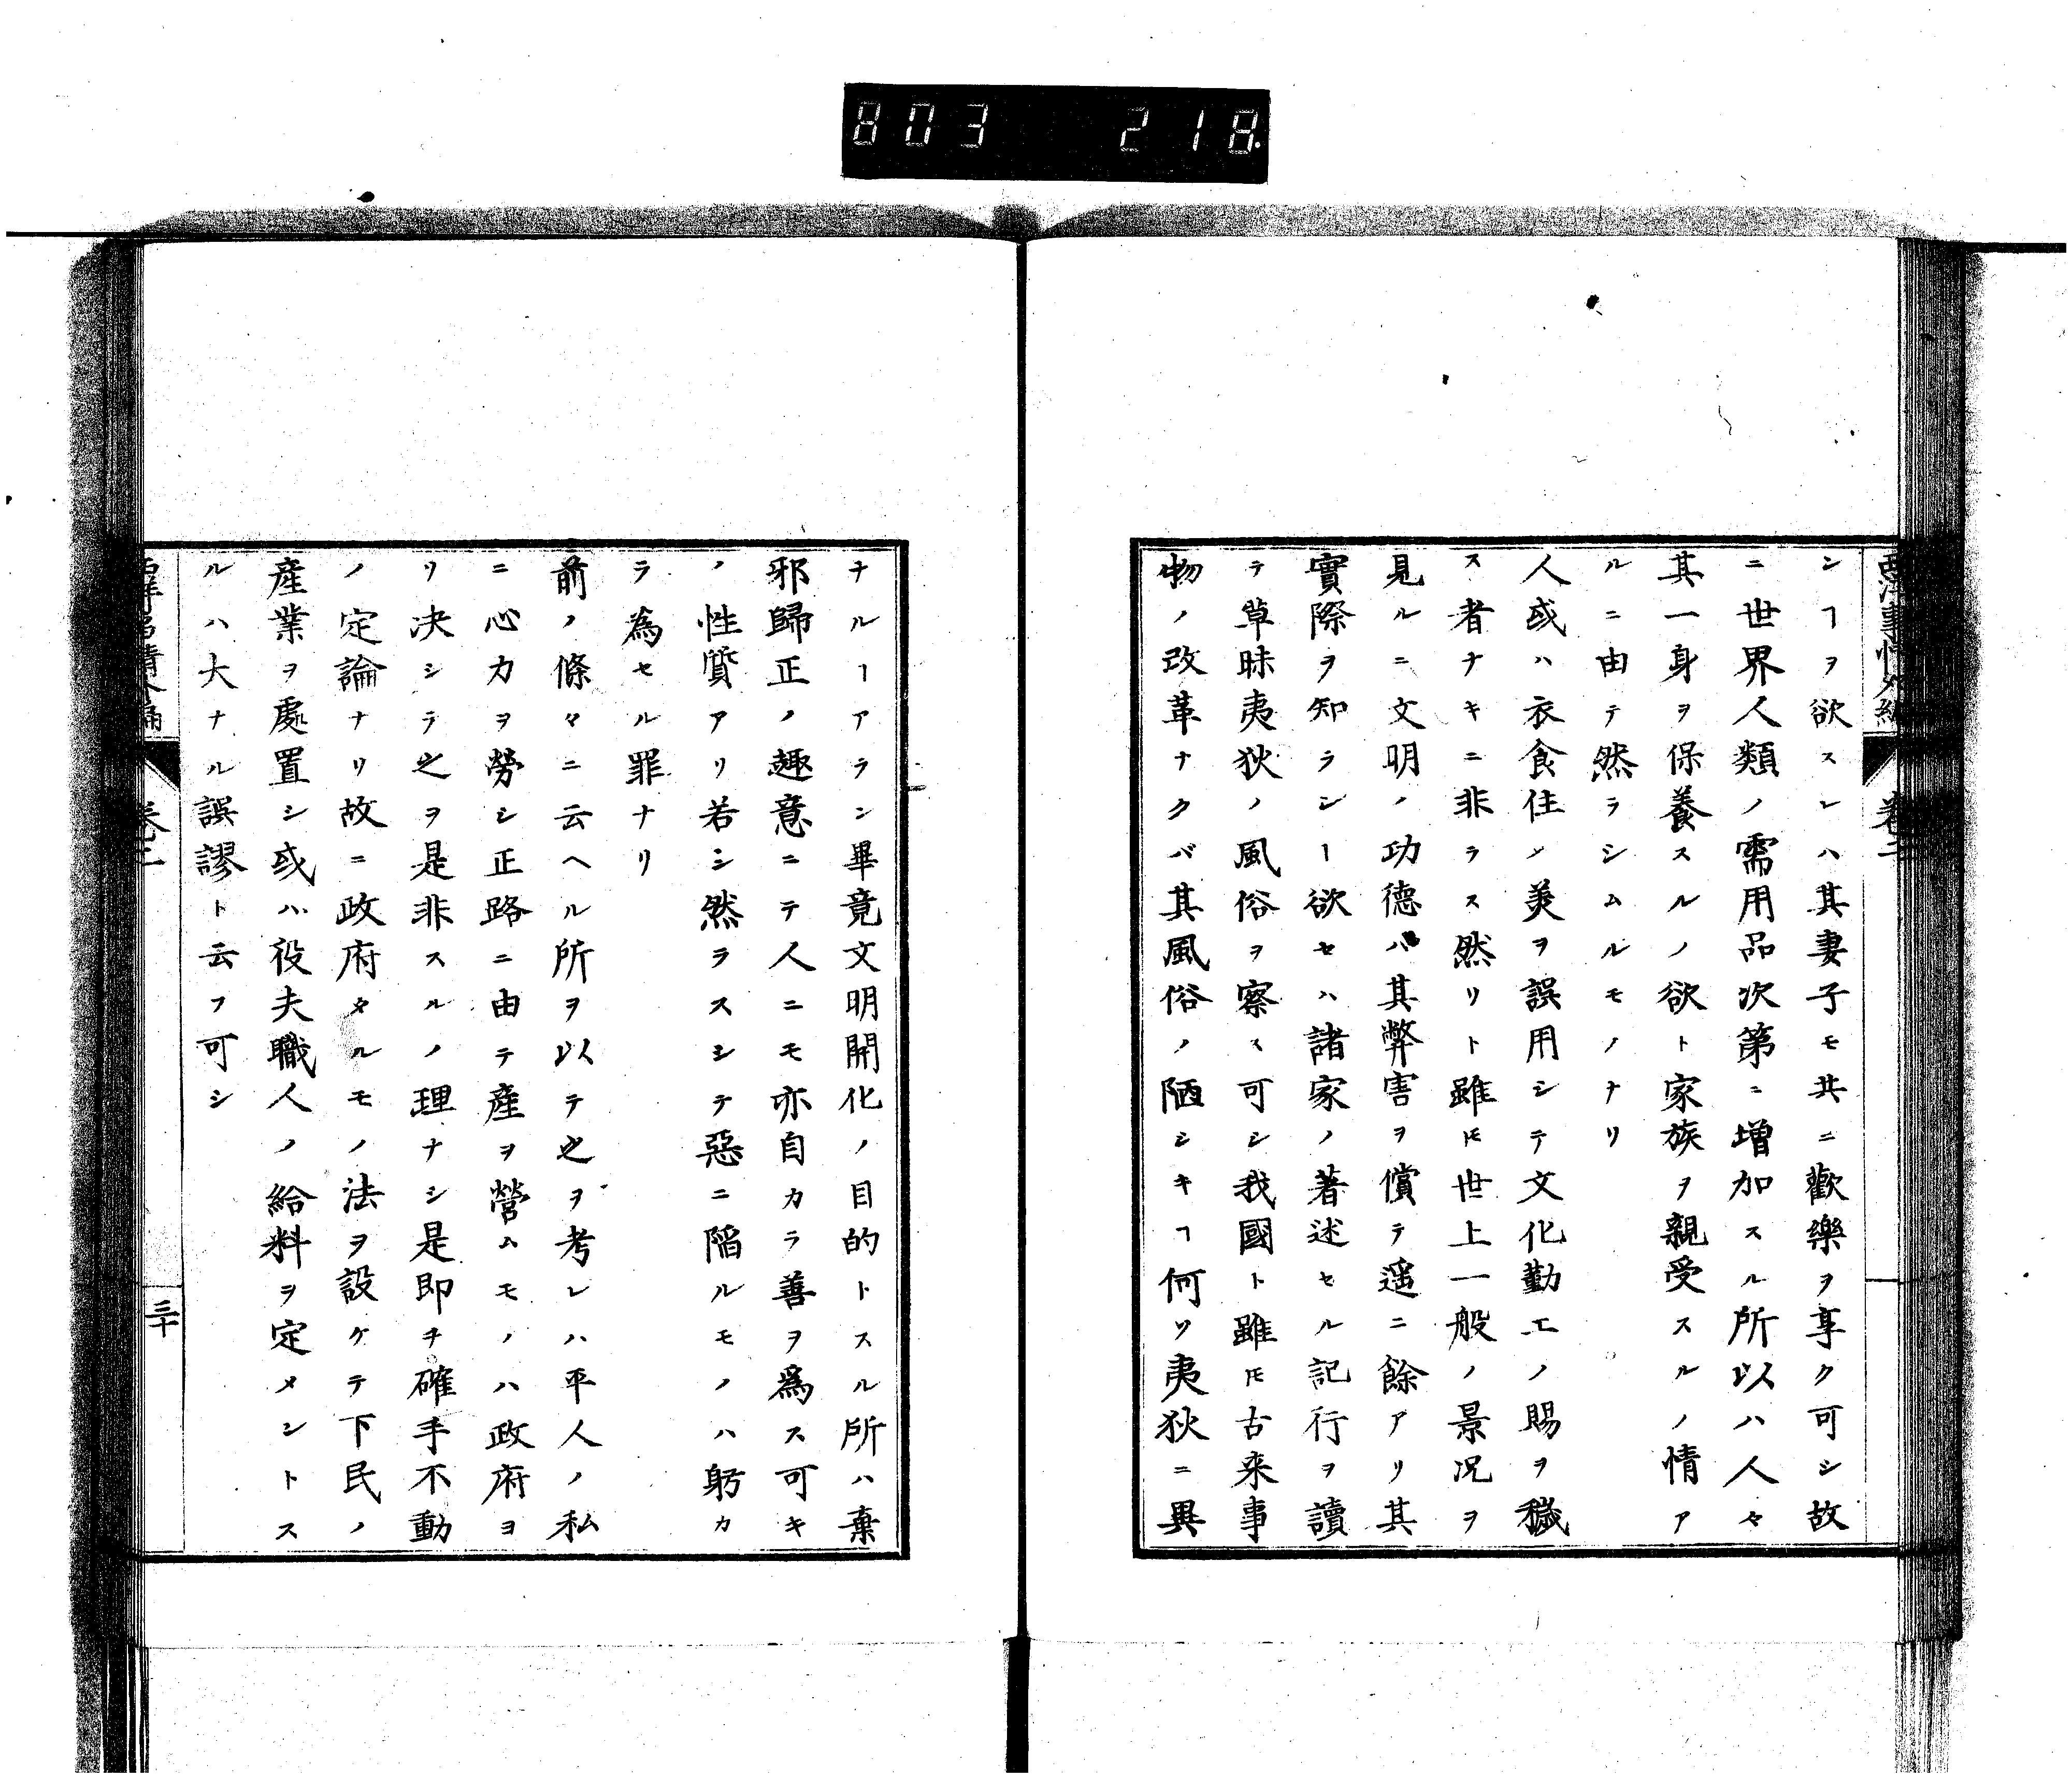 803 218
西洋事情外編
巻二
ンヿヲ欲スレハ其妻子モ共ニ歡樂ヲ享ク可シ故
ニ世界人類ノ需用品次第ニ増加スル所以ハ人々
其一身ヲ保養スルノ欲ト家族ヲ親受スルノ情ア
ルニ由テ然ラシムルモノナリ
人或ハ衣食住ノ美ヲ誤用シテ文化勤工ノ賜ヲ穢
ス者ナキニ非ラス然リト雖𪜈世上一般ノ景况ヲ
見ルニ文明ノ功德ハ其弊害ヲ償テ遥ニ餘アリ其
實際ヲ知ランヿ欲セハ諸家ノ著述セル記行ヲ讀
テ草昧夷狄ノ風俗ヲ察ス可シ我國ト雖𪜈古来事
物ノ改革ナクバ其風俗ノ陋シキヿ何ソ夷狄ニ異
ナルヿアラン畢竟文明開化ノ目的トスル所ハ棄
邪歸正ノ趣意ニテ人ニモ亦自カラ善ヲ爲ス可キ
ノ性質アリ若シ然ラスシテ惡ニ陷ルモノハ躬カ
ラ為セル罪ナリ
前ノ條々ニ云ヘル所ヲ以テ之ヲ考レハ平人ノ私
ニ心力ヲ勞シ正路ニ由テ産ヲ營ムモノハ政府ヨ
リ决シテ之ヲ是非スルノ理ナシ是即チ確手不動
ノ定論ナリ故ニ政府タルモノノ法ヲ設ケテ下民ノ
産業ヲ處置シ或ハ役夫職人ノ給料ヲ定メントス
ルハ大ナル誤謬ト云フ可シ
西洋事情外編
巻二
三十